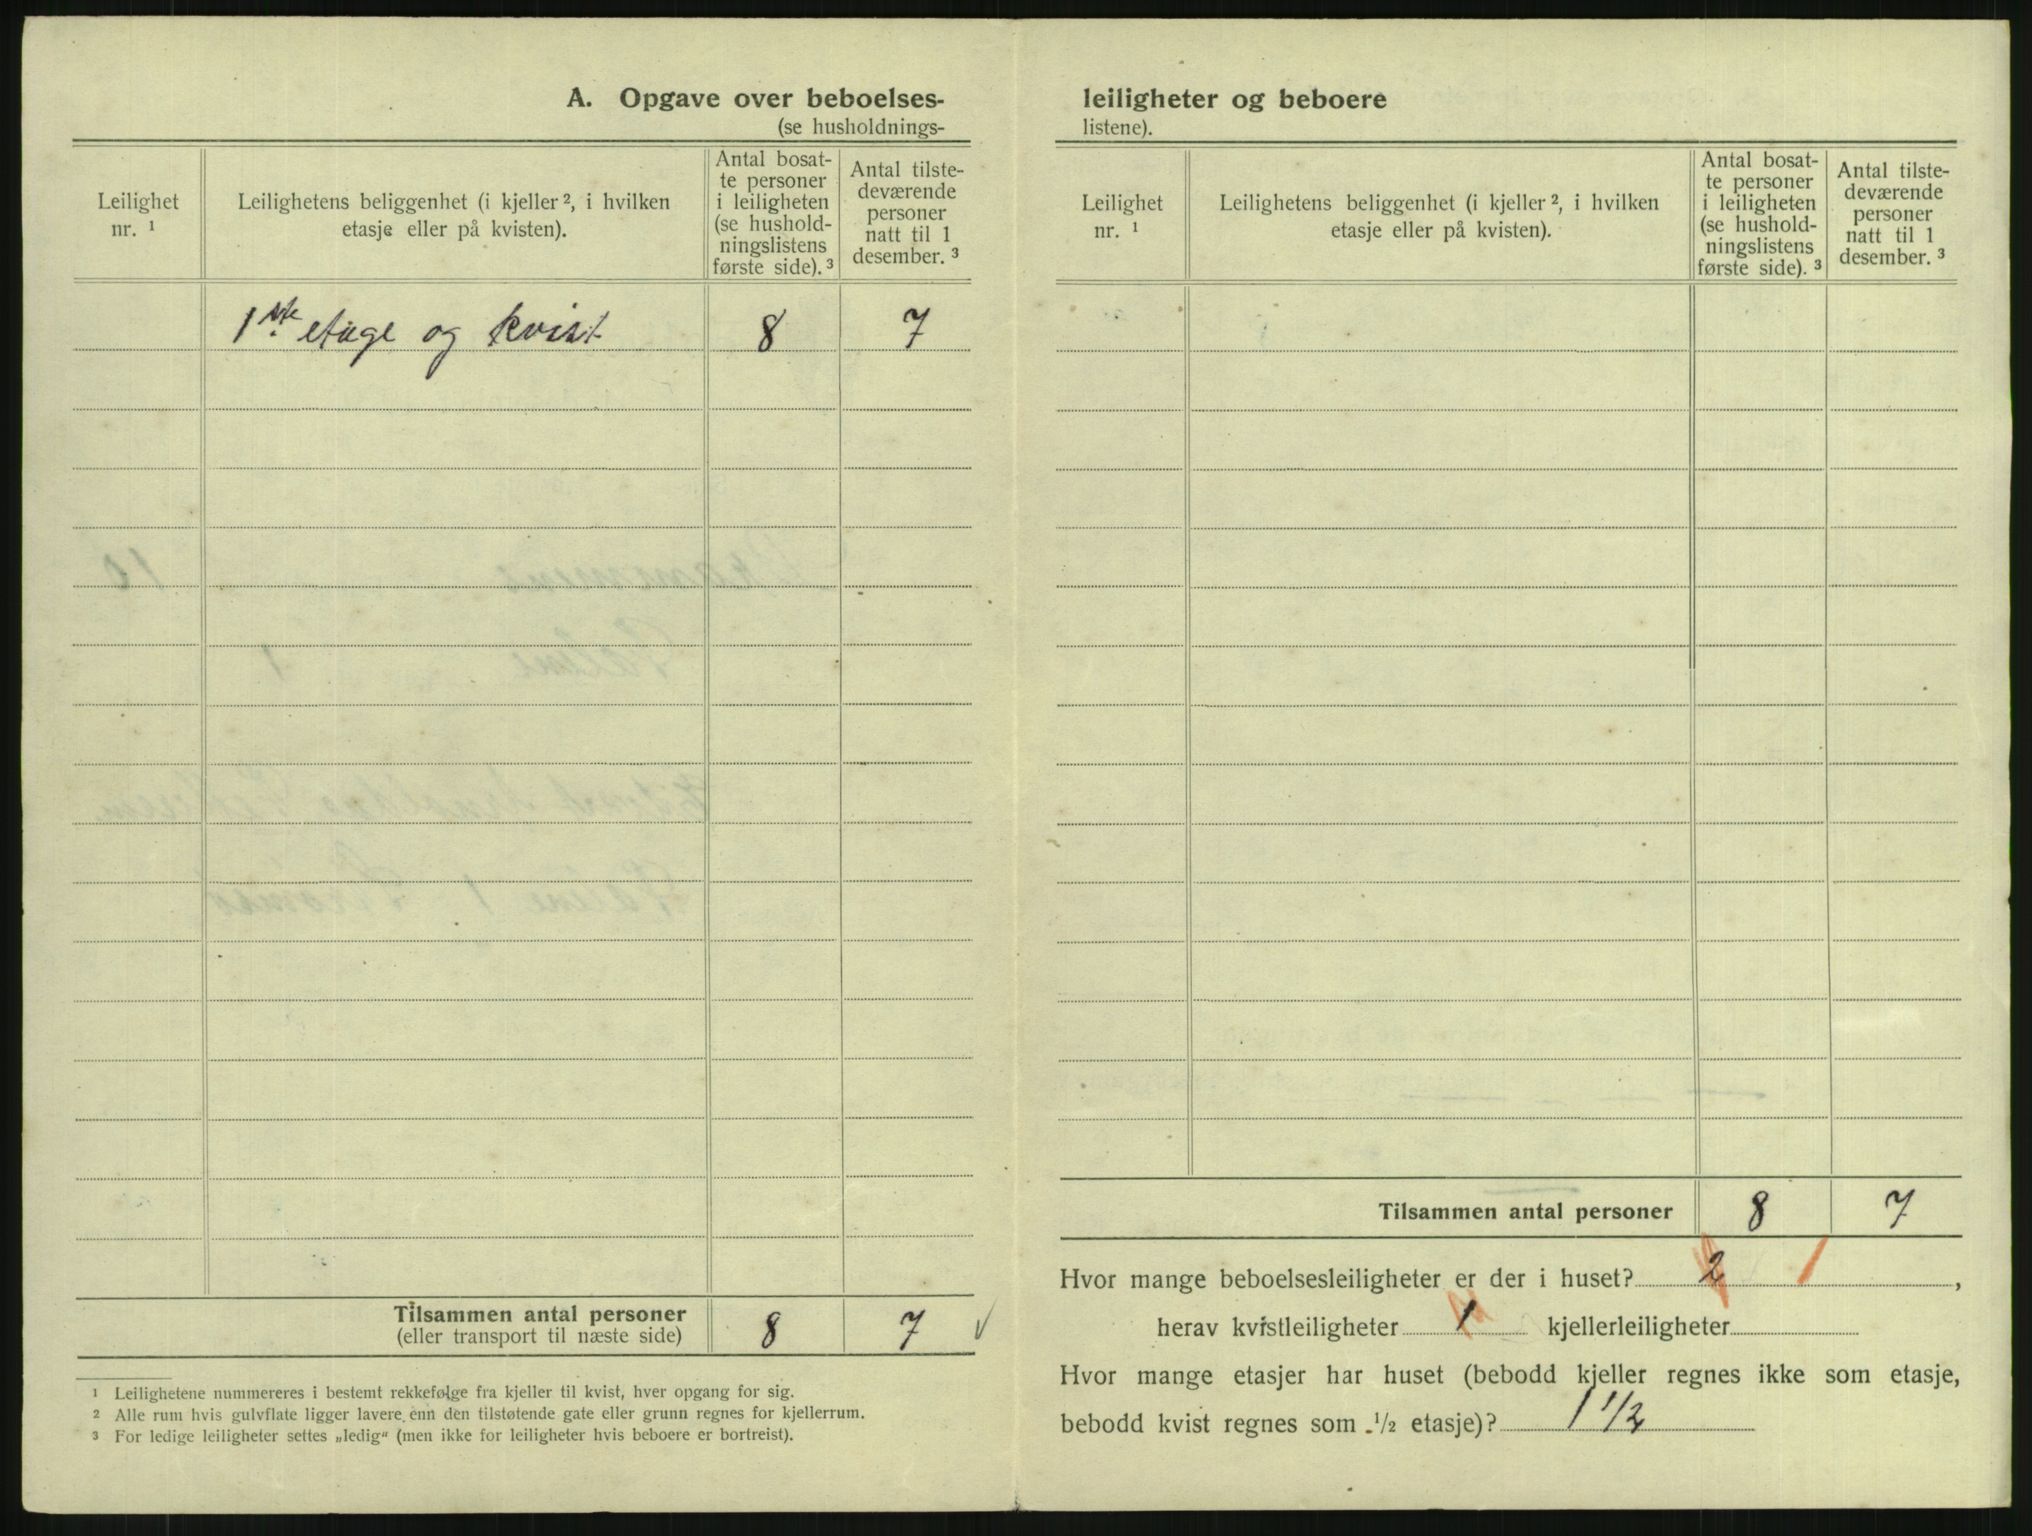 A. Opgave over beboelses-
(se husholdnings-
Leilighet nr. ¹
Leilighetens beliggenhet (i kjeller ², i hvilken etasje eller på kvisten).
Antal bosat-
te personer
i leiligheten
(se hushold-
ningslistens
første side). ³
Antal tilste-
deværende
personer
natt til 1
desember. ³
1ste etage og kvist 8 7
Tilsammen antal personer
(eller transport til næste side) 8 7 ✓
¹ Leilighetene nummereres i bestemt rekkefølge fra kjeller til kvist, hver opgang for sig.
² Alle rum hvis gulvflate ligger lavere enn den tilstøtende gate eller grunn regnes for kjellerrum.
³ For ledige leiligheter settes „ledig“ (men ikke for leiligheter hvis beboere er bortreist).
leiligheter og beboere
listene).
Leilighet nr. ¹
Leilighetens beliggenhet (i kjeller ², i hvilken etasje eller på kvisten).
Antal bosat-
te personer
i leiligheten
(se hushold-
ningslistens
første side). ³
Antal tilste-
deværende
personer
natt til 1
desember. ³
Tilsammen antal personer 8 7
Hvor mange beboelsesleiligheter er der i huset? 2 1,
herav kvistleiligheter 1 kjellerleiligheter
Hvor mange etasjer har huset (bebodd kjeller regnes ikke som etasje,
bebodd kvist regnes som ½ etasje)? 1 1/2